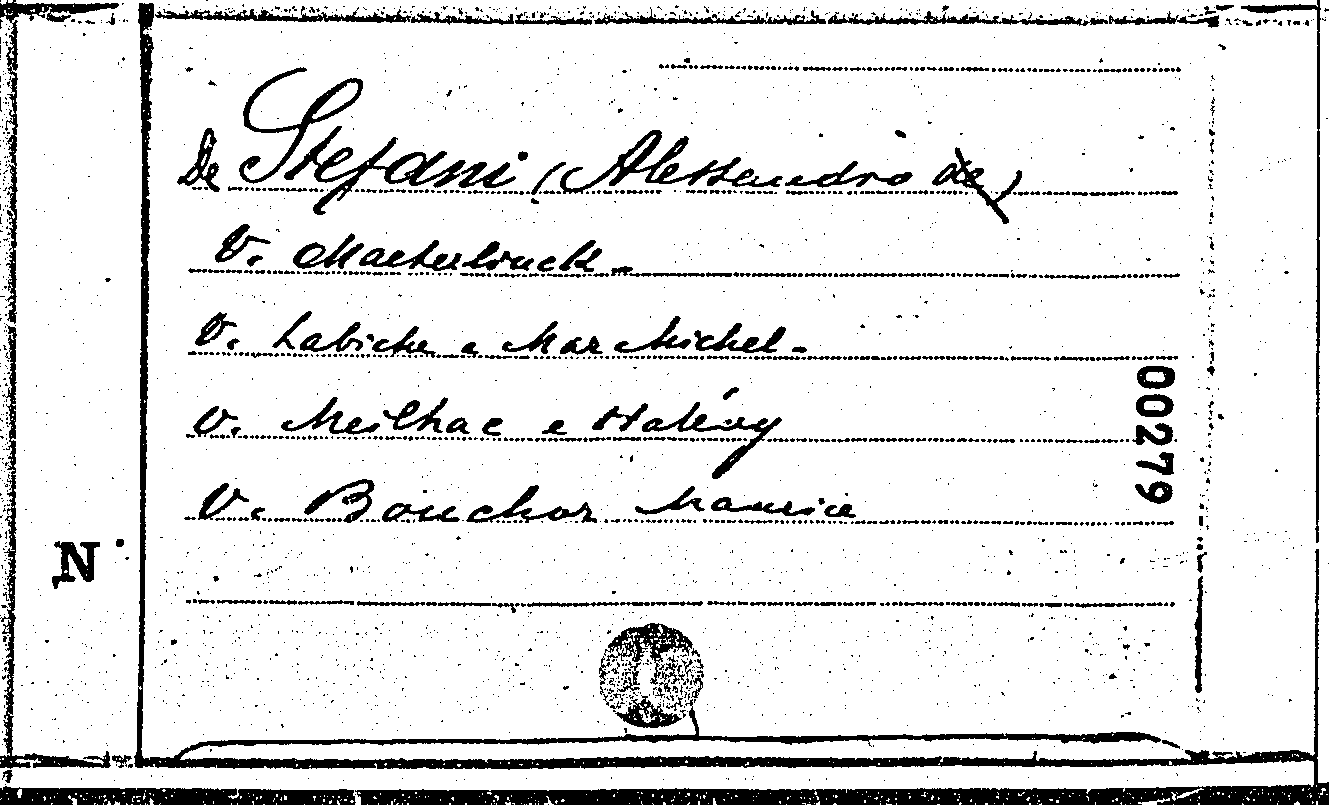 De Stefani (Alessandro de)
V. Maeterlinck -
V. Labiche e Mar Michel -
V. Meilhac e Halévy
V. Bouchor Maurice
00279
N